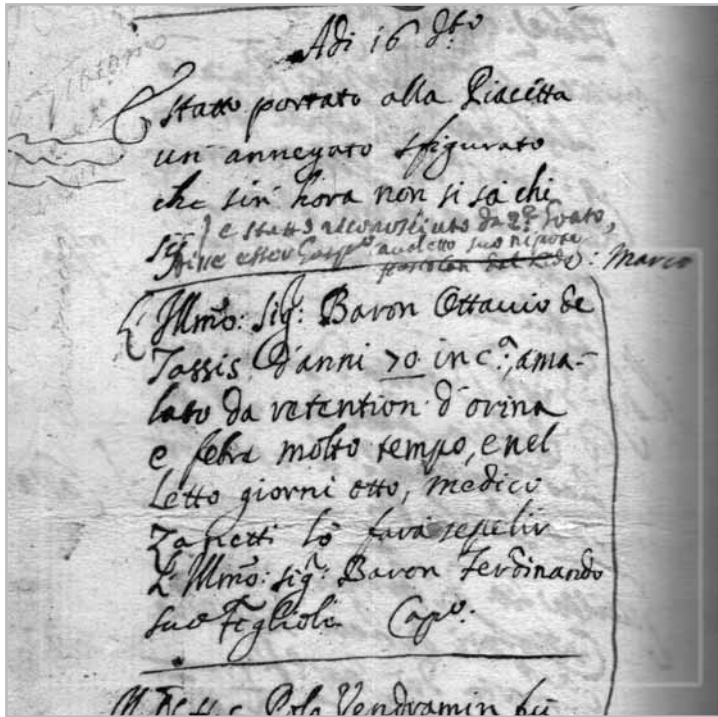 Adi 16 dto
È statto portato alla Piacetta
un annegato sfigurato
che sin hora non si sà chi
sij è statto riconosciuto da
disse esser suo nipote
: Marco
L'Illmo: sigr: Baron Ottavio de
Tassis d'anni 70 in ca, ama-
lato da retention d'orina
e febre molto tempo, e nel
Letto giorni otto, medico
Zanetti lo farà sepelir
L'Illmo: sigr: Baron Ferdinando
suo Figliolo Capo:
Vendramin fù